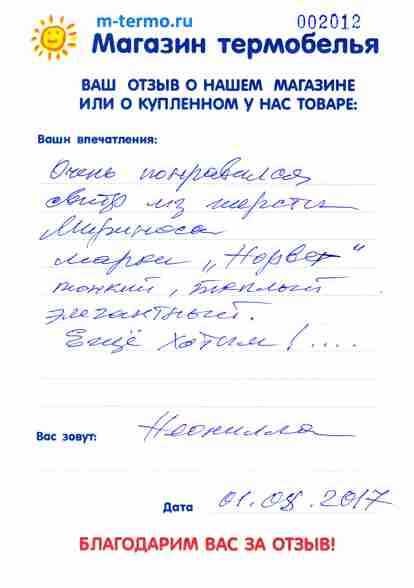 m-termo.ru 002012
Магазин термобелья
ВАШ ОТЗЫВ О НАШЕМ МАГАЗИНЕ
ИЛИ О КУПЛЕННОМ У НАС ТОВАРЕ:
Ваши впечатления:
Очень понравился
свитр из шерсти
Мериноса
марки „Норвег“
тонкий, тёплый
элегантный.
Ещё хотим!....
Вас зовут: Неонилла
Дата 01.08.2017
БЛАГОДАРИМ ВАС ЗА ОТЗЫВ!